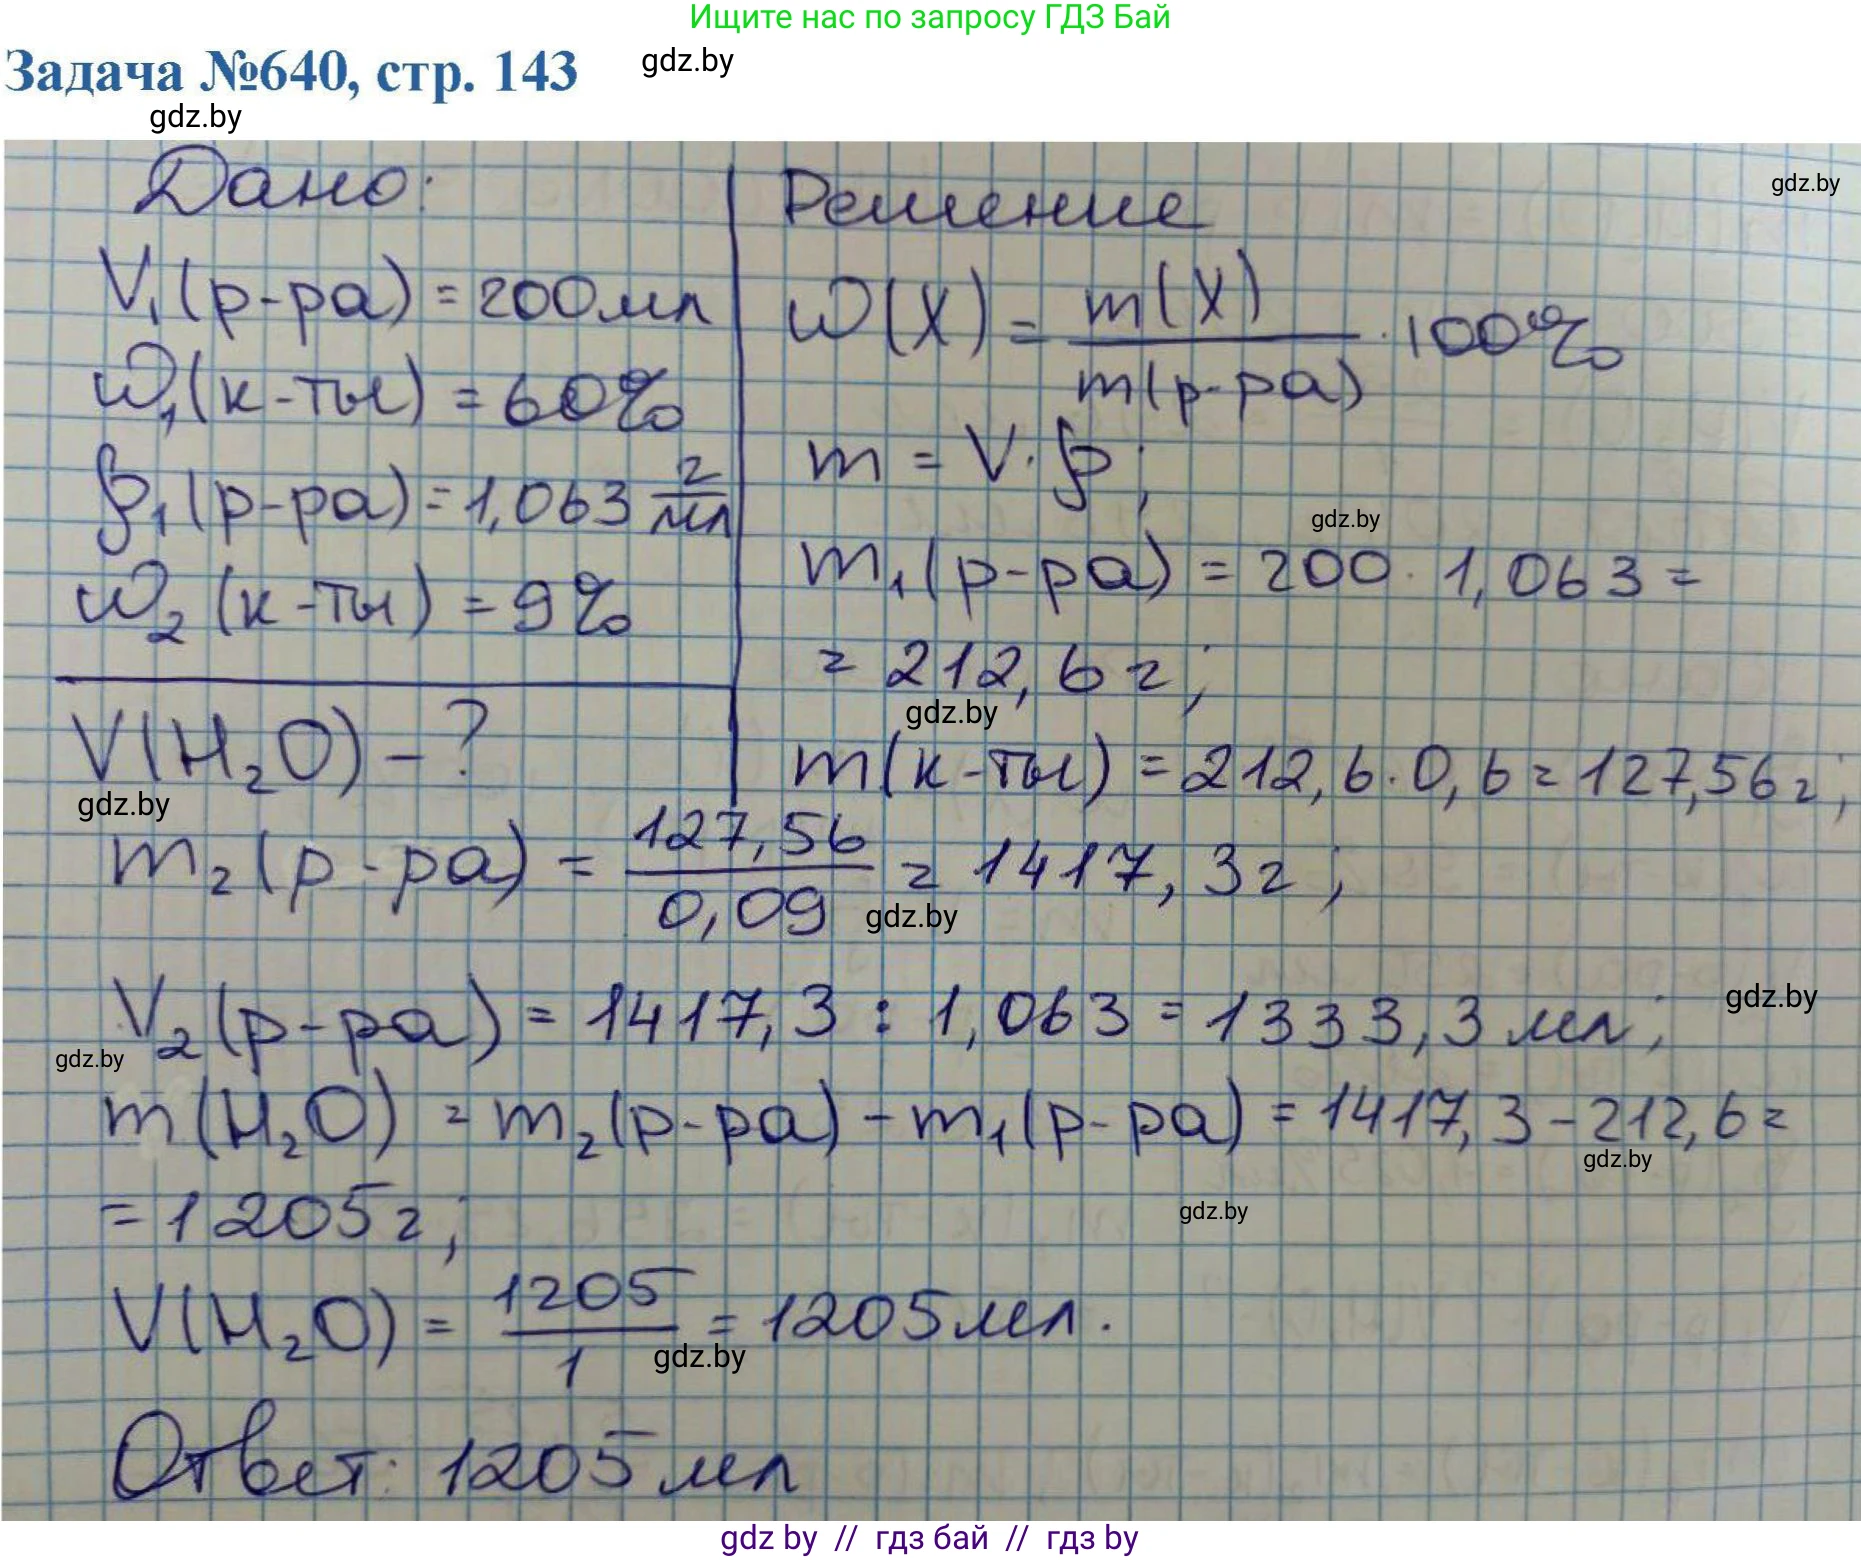 Ищите нас по запросу ГДЗ Бай
Задача №640, стр. 143
gdz.by
gdz.by
Дано:
V₁(р-ра) = 200мл
ω₁(к-ты) = 60%
ρ₁(р-ра) = 1,063 г/мл
ω₂(к-ты) = 9%
V(H₂O) - ?
gdz.by
Решение
gdz.by
ω(X) = m(X)/m(р-ра) · 100%
m = V · ρ;
gdz.by
m₁(р-ра) = 200 · 1,063 =
= 212,6 г;
gdz.by
m(к-ты) = 212,6 · 0,6 = 127,56 г;
m₂(р-ра) = 127,56/0,09 = 1417,3 г;
gdz.by
V₂(р-ра) = 1417,3 : 1,063 = 1333,3 мл;
gdz.by
gdz.by
m(H₂O) = m₂(р-ра) - m₁(р-ра) = 1417,3 - 212,6 =
gdz.by
= 1205 г;
gdz.by
V(H₂O) = 1205/1 = 1205 мл.
gdz.by
Ответ: 1205 мл
gdz by // гдз бай // гдз by